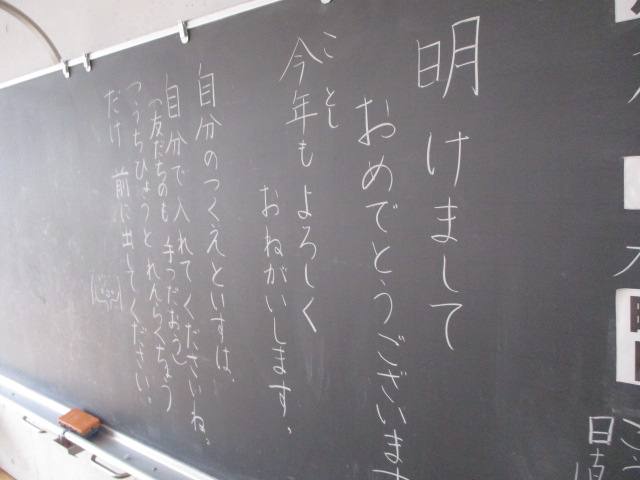 明けまして
おめでとうございます
ことし
今年もよろしく
おねがいします。
自分のつくえといすは、
自分で入れてくださいね。
(友だちのも手つだおう)
つうちひょうとれんらくちょう
だけ前に出してください。
日直